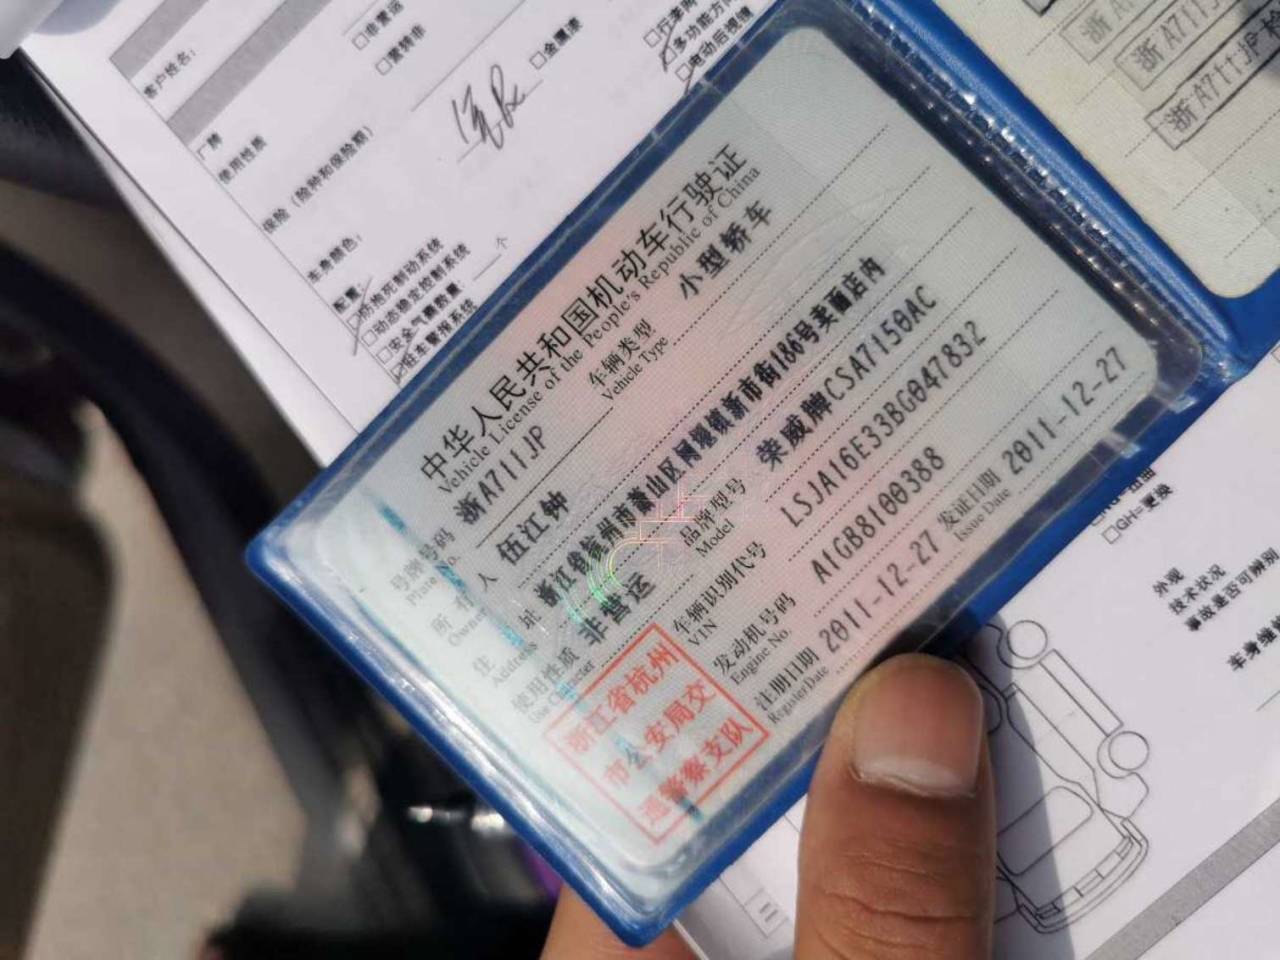 中华人民共和国机动车行驶证
Vehicle License of the People's Republic of China
号牌号码 浙A711JP 车辆类型 小型轿车
Plate No. Vehicle Type
所有人 伍江钟
Owner
住址 浙江省杭州市萧山区闻堰镇新市街186号美丽店内
Address
使用性质 非营运 品牌型号 荣威牌CSA7150AC
Use Character Model
车辆识别代号 LSJA16E33BG047832
VIN
发动机号码 A1GB8100388
Engine No.
注册日期 2011-12-27 发证日期 2011-12-27
Register Date Issue Date
浙江省杭州
市公安局交
通警察支队
客户姓名:
厂牌
使用性质
□非营运
□营转非
保险(险种和保险期)
车身颜色:
□金属漆
配置:
防抱死制动系统
□动态稳定控制系统
□安全气囊数量 个
驻车雷达系统
多功能方向
电动后视镜
浙A711JP
□GH=更换
外观
技术状况
事故是否可辨别
三